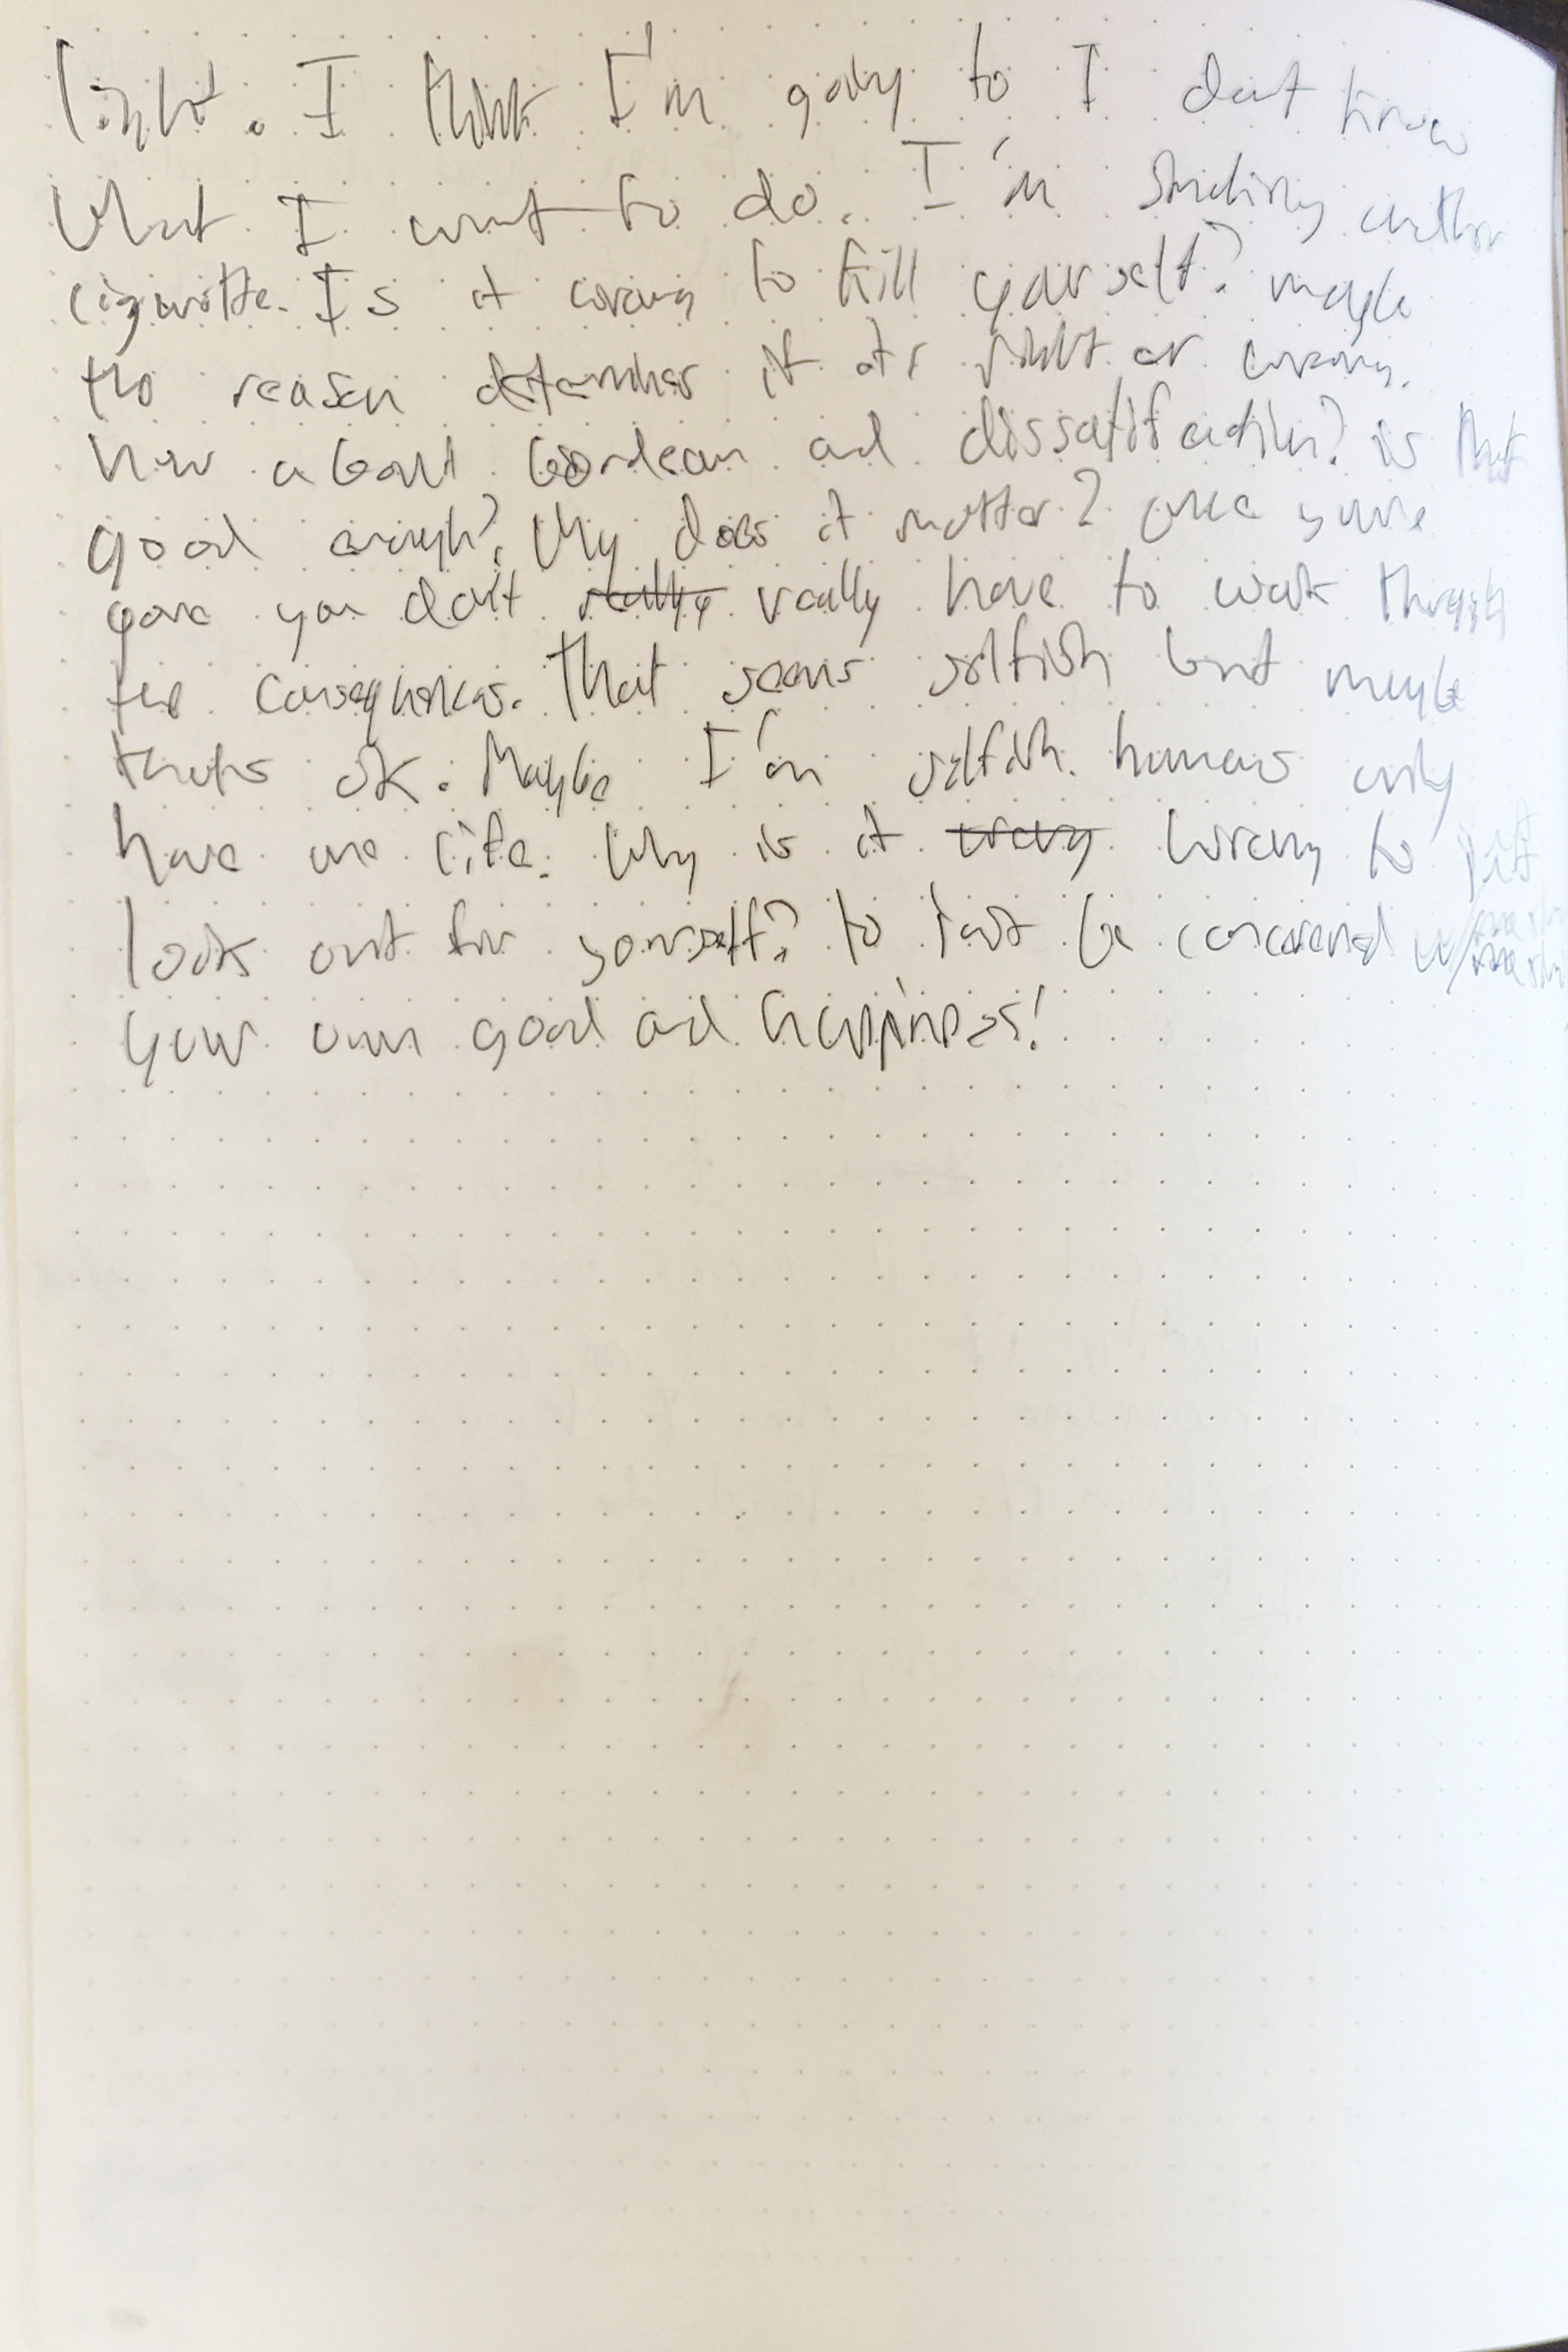 light. I think I'm going to I dont know
What I want to do. I'm smoking another
cigarette. Is it wrong to kill yourself? maybe
the reason determines if it's right or wrong.
how about boredom and dissatisfaction? is that
good enough? Why does it matter? once youre
gone you don't really really have to work through
the consequences. That seems selfish but maybe
thats ok. Maybe I'm selfish. humans only
have one life. Why is it wrong wrong to just
look out for yourself? to just be concerned w/
your own good and happiness!